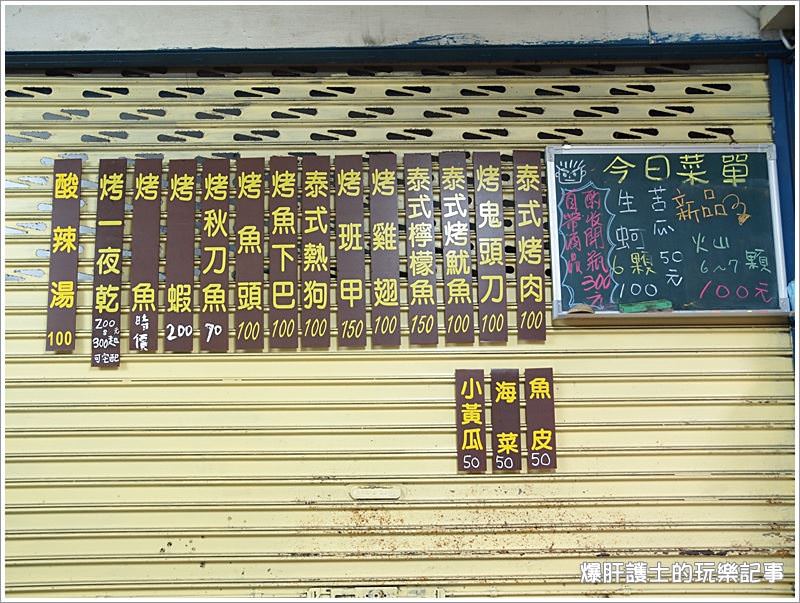 酸辣湯 100
烤一夜乾
200
300
可宅配
烤魚 時價
烤蝦 200
烤秋刀魚 90
烤魚頭 100
烤魚下巴 100
泰式熱狗 100
烤班甲 150
烤雞翅 100
泰式檸檬魚 150
泰式烤魷魚 100
烤鬼頭刀 100
泰式烤肉 100
小黃瓜 50
海菜 50
魚皮 50
今日菜單
新品
火山
6~7顆
100元
苦瓜 50元
生蚵
6顆
100
酌收開瓶300元
自帶商品
爆肝護士的玩樂記事